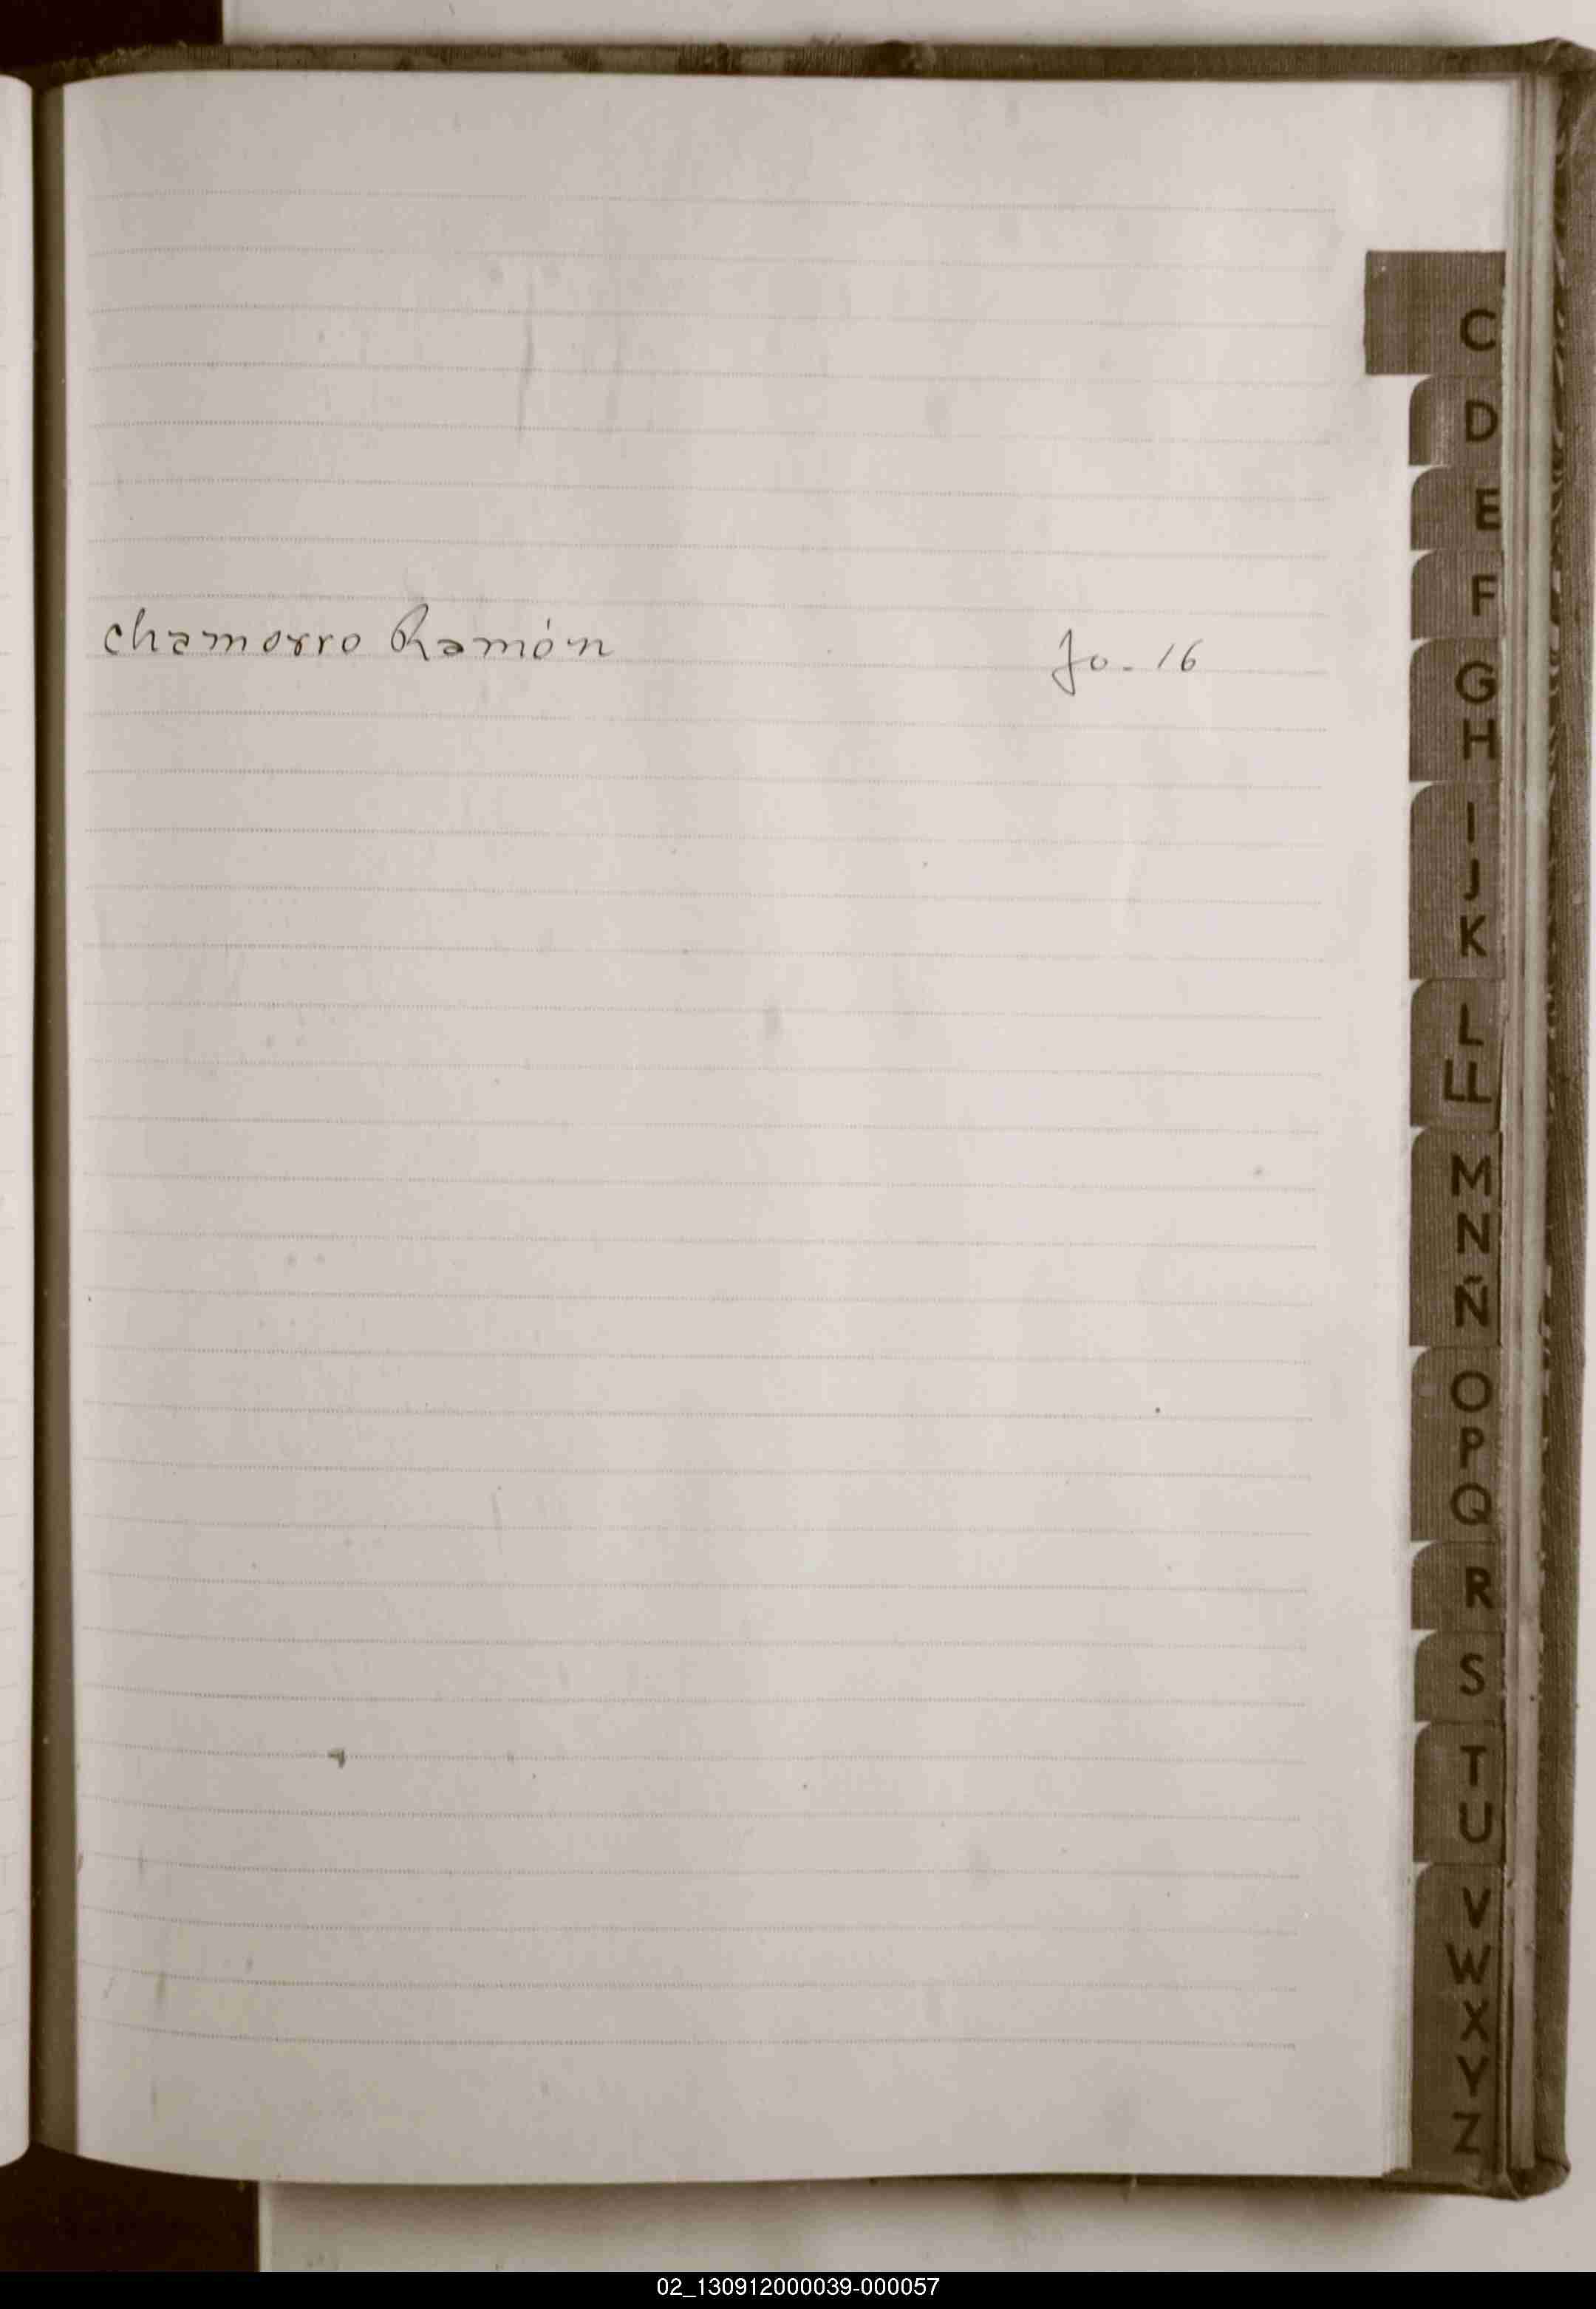 Chamorro Ramón fo- 16
C
D
E
F
G
H
I
J
K
L
LL
M
N
Ñ
O
P
Q
R
S
T
U
V
W
X
Y
Z
02_130912000039-000057